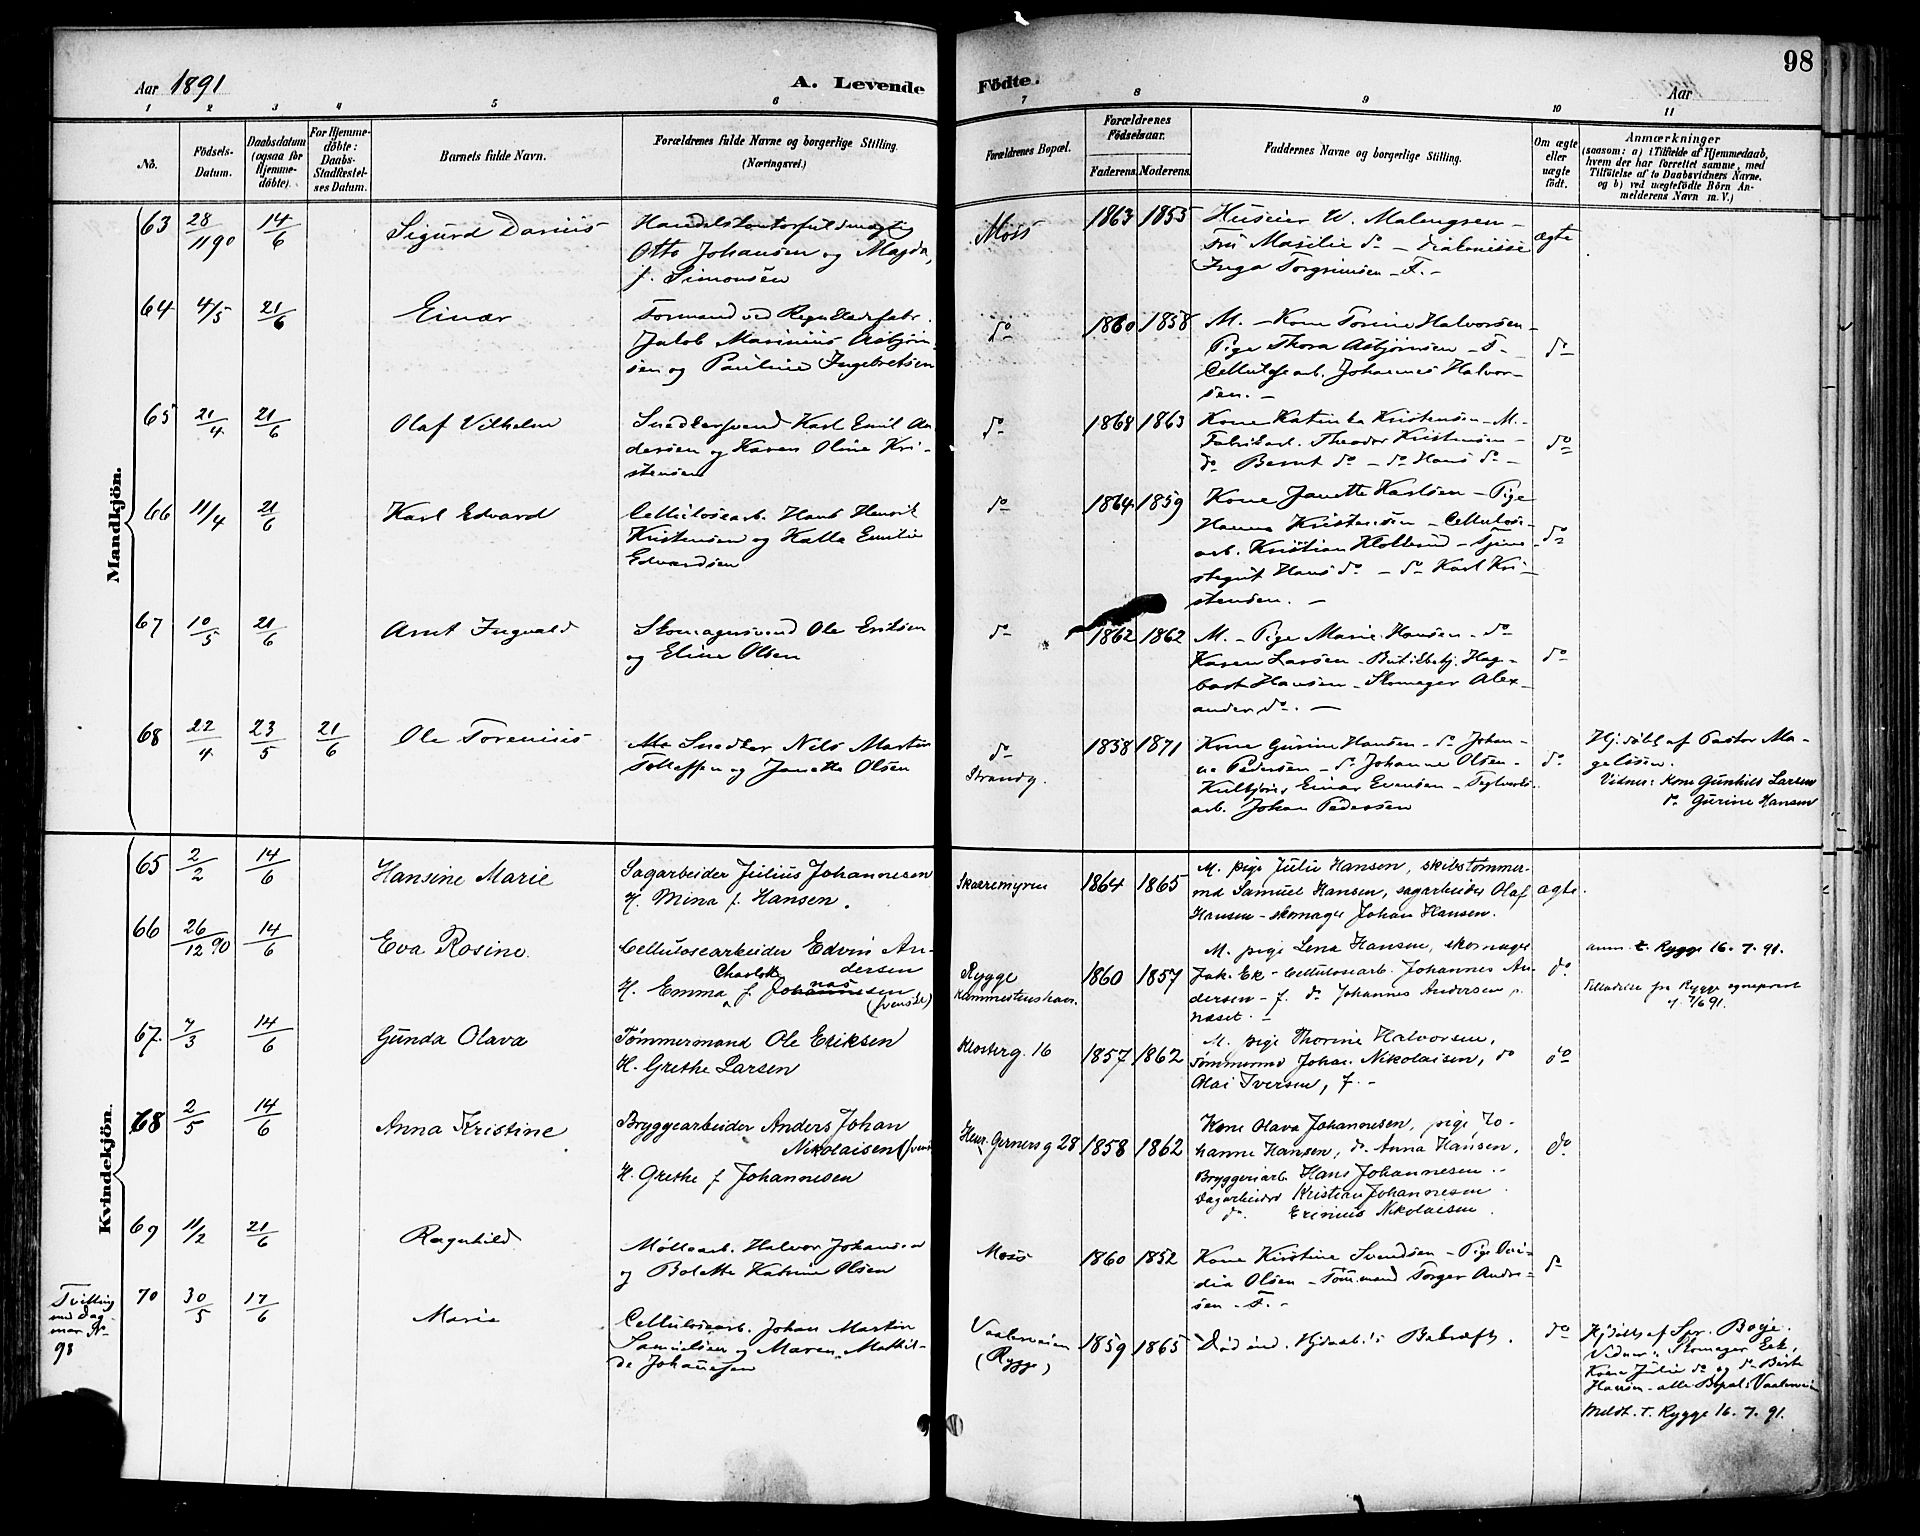 98
Aar 1891
A. Levende
Födte.
Aar
1 2 3 4 5 6 7 8 9 10 11
Nö.
Födsels-
Datum.
Daabsdatum
(ogsaa for
Hjemme-
döbte).
For Hjemme-
döbte:
Daabs-
Stadfæstel-
ses Datum.
Barnets fulde Navn.
Forældrenes fulde Navne og borgerlige Stilling.
(Næringsvei.)
Forældrenes Bopæl.
Forældrenes
Födselsaar.
Faderens. Moderens.
Faddernes Navne og borgerlige Stilling.
Om ægte
eller
uægte
födt.
Anmærkninger
(saasom: a) i Tilfælde af Hjemmedaab,
hvem der har forrettet samme, med
Tilföielse af to Daabsvidners Navne,
og b) ved uægtefödte Börn An-
melderens Navn m. V.)
Mandkjön.
63 28/1190 14/6
Sigurd Darius
Otto Johansen og Magda,
f. Simonsen
Moss
1863 1855
Huseier W. Malengsen -
Fru Masilie do - Diakonisse
Inga Torgrimsen - F. -
ægte
64 4/5 21/6
Einar
Jakob Marinius Asbjørn-
sen og Pauline Ingebretsen
do
1860 1858
M. - Kone Torine Halvorsen -
Pige Thora Asbjørnsen - F. -
Cellulosearb. Johannes Halvor-
sen. -
do
65 21/4 21/6
Olaf Vilhelm
Snedkersvend Karl Emil An
dersen og Karen Oline Kri-
stensen
do
1868 1863
Kone Katinka Kristensen - M. -
Fabrikarb. Theodor Kristensen -
do Bernt do - do Hans do -
do
66 11/4 21/6
Karl Edvard
Cellulosearb. Hans Henrik
Kristensen og Kalla Emilie
Edvardsen
do
1864 1859
Kone Janette Karlsen - Pige
Hanna Kristensen - Cellulose-
arb. Kristian Klollerud - Tjene-
stegut Hans do - do Karl Kri-
stensen. -
do
67 10/5 21/6
Arnt Ingvald
Skomagersvend Ole Eriksen
og Eline Olsen
do
1862 1862
M. - Pige Marie Hansen - do
Karen Larsen - Butikbetj. Hag-
bart Hansen - Skomager Alex-
ander do. -
do
68 22/4 23/5 21/6
Ole Torenius
Snedker Nils Martin
Tollefsen og Janette Olsen
do
Strandg.
1838 1871
Kone Gurine Hansen - do Johan-
ne Pedersen - do Johanne Olsen -
Kulkjører Einar Evensen - Teglverks-
arb. Johan Pedersen
do
Hj. døbt af Pastor Ma-
gelssen.
Vidner: Kone Gunhild Larsen
do Gurine Hansen
Kvindekjön.
65 2/2 14/6
Hansine Marie
Sagarbeider Julius Johannesen
H. Mina f. Hansen.
Skarremyren
1864 1865
M. pige Julie Hansen, skibstømmer-
md Samuel Hansen, sagarbeider Olaf
Hansen - skomager Johan Hansen.
ægte
66 26/12 90 14/6
Eva Rosine.
Cellulosearbeider Edvin An-
dersen
Charlotte nas
H. Emma f. Johannesen
(svenske)
Rygge
1860 1857
M. pige Lena Hansen, skomager
Joh. Ek - Cellulosearb. Johannes An-
dersen - f. do Johannes Andersen
næset. -
do
anm. t. Rygge 16. 7. 91.
67. 7/3 14/6
Gunda Olava
Tømmermand Ole Eriksen
H. Grethe Larsen
Klosterg. 16
1857 1862
M. pige Thorine Halvorsen,
Tømmermd Johan Nikolaisen, do
Olai Iversen, f. -
do
68 2/5 14/6
Anna Kristine
Bryggearbeider Anders Johan
Nikolaisen (svensk
H. Grethe f. Johannesen
Henr. Gerners g 28
1858 1862
Kone Olava Johannesen, pige Jo-
hanne Hansen, do. Anna Hansen,
Bryggeriarb. Hans Johannesen
Dagarbeider Kristian Johannesen
do. Erinius Nikolaisen.
do.
69 11/2 21/6
Ragnhild
Møllearb. Halvor Johansen
og Bolette Katrine Olsen
Moss
1860 1852
Kone Kirstine Svendsen - Pige Ovi-
dia Olsen - Tømmermand Torger Andre-
sen - F. -
do
Tvilling
med Dag-
mar No
98
70 30/5 17/6
Marie
Cellulosearb. Johan Martin
Samuelsen og Maren Mathil-
de Johansen
Vaalerveien
(Rygge)
1859 1865
Død ind. Hjdaab. Bekræft.
do
Hjdøbt af Spr. Boje.
Vidner: Skomager Eek,
Kone Julie do og do Berte
Hansen - alle Bopæl: Vaalerveien
Meldt. t. Rygge 16. 7. 91.